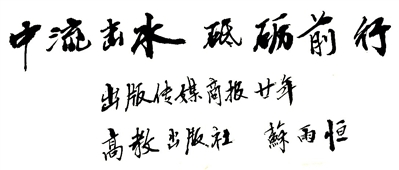 中流击水 砥砺前行
出版传媒商报廿年
高教出版社 蘇雨恒